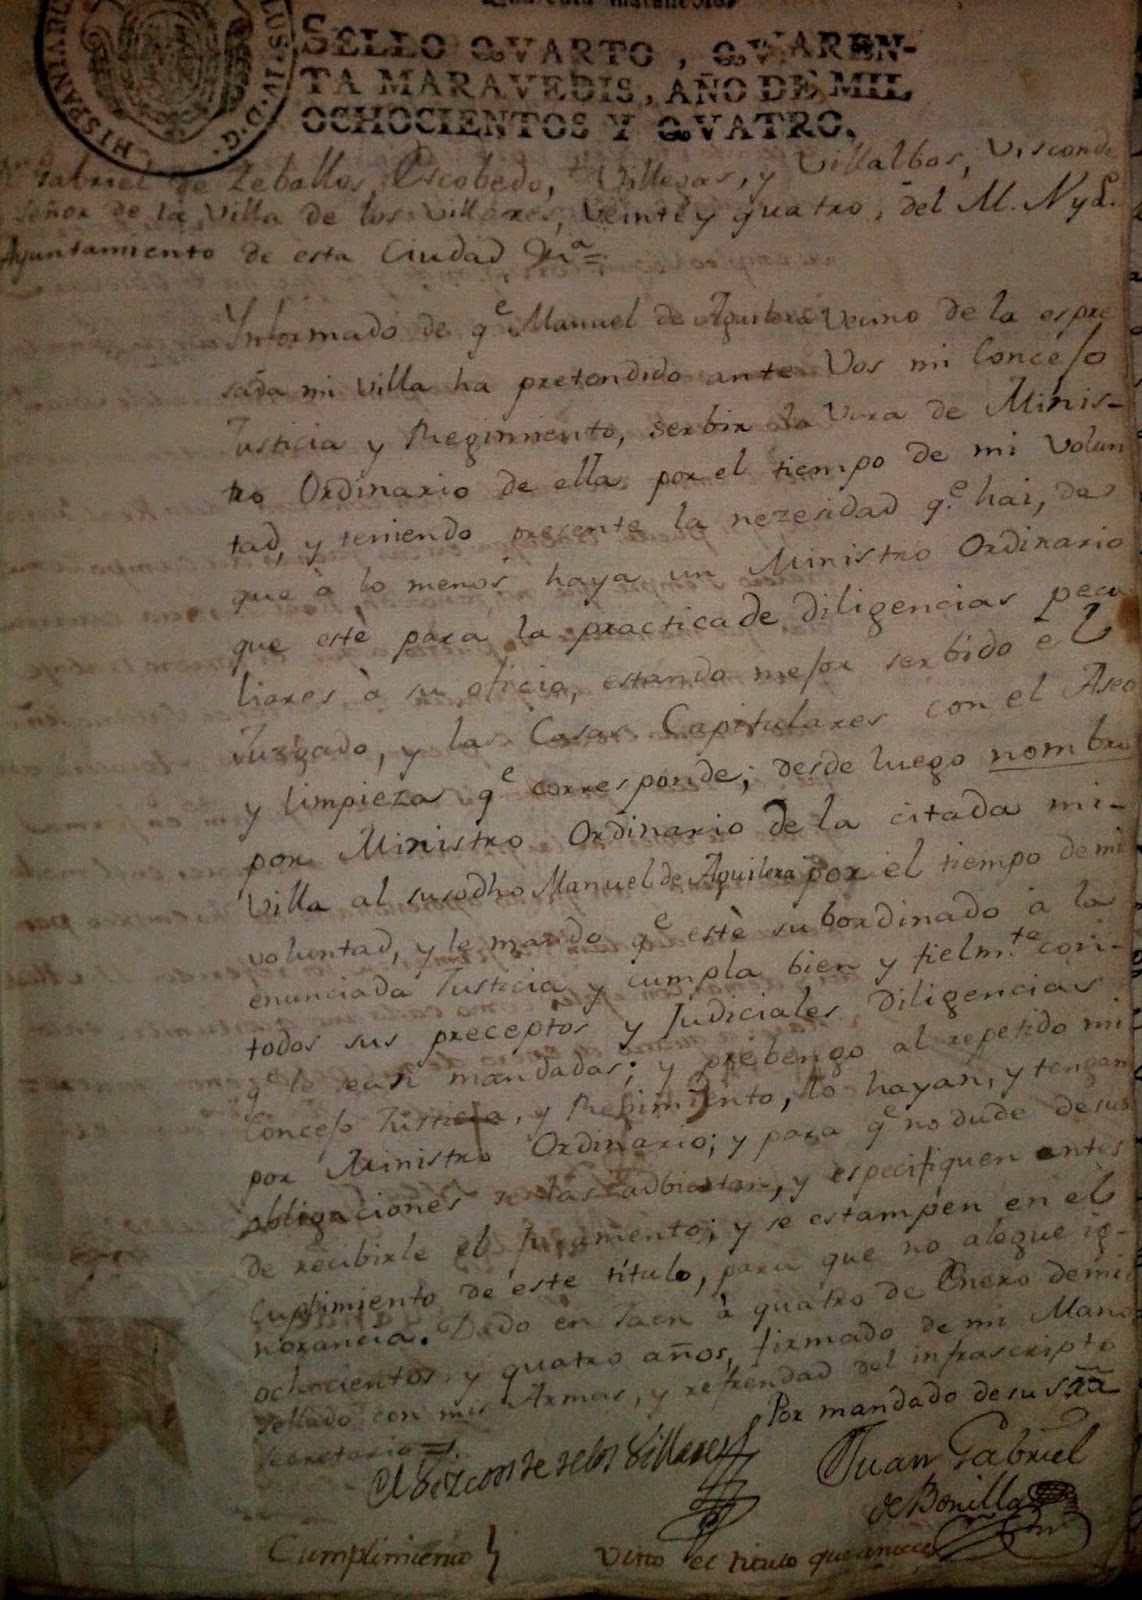 SELLO QVARTO, QVAREN-
TA MARAVEDIS, AÑO DE MIL
OCHOCIENTOS Y QVATRO.
HISPANIAR
LUS·IV·D·G·
Dn Gabriel de Zeballos Escobedo, Villegas, y Villalbos, Visconde
Señor de la Villa de los Villares, Veinte y quatro, del M. N y L.
Ayuntamiento de esta Ciudad
Informado de qe Manuel de Aguilera Vecino de la espre
sada mi Villa ha pretendido ante Vos mi Concejo
Justicia y Regimiento, serbir la Vara de Minis-
tro Ordinario de ella por el tiempo de mi Volun
tad, y teniendo presente la nezesidad qe hai, de
que à lo menos haya un Ministro Ordinario
que estè para la practica de diligencias pecu
liares à su oficio, estando mejor serbido el
Juzgado, y las Casas Capitulares con el Aseo
y limpieza qe corresponde; desde luego nombro
por Ministro Ordinario de la citada mi-
Villa al susodho Manuel de Aguilera por el tiempo de mi
voluntad, y le mando qe estè subordinado à la
enunciada Justicia y cumpla bien y fielmte con-
todos sus preceptos y Judiciales diligencias
qe le sean mandadas; y prebengo al repetido mi
Concejo Justicia, y Regimiento, lo hayan, y tengan
por Ministro Ordinario; y para qe no dude de sus
obligaciones se las adbiertan, y especifiquen antes
de recibirle el juramento; y se estampen en el
Cuplimiento de este título, para que no alegue ig-
norancia. Dado en Jaen à quatro de Enero de mil
ochocientos y quatro años, firmado de mi Mano
sellado con mis Armas, y refrendad del infrascripto
Secretario =
Por mandado de su Sria
El Vizconde de los Villares
Juan Gabriel
de Bonilla
Cumplimiento
Visto el titulo que antecede